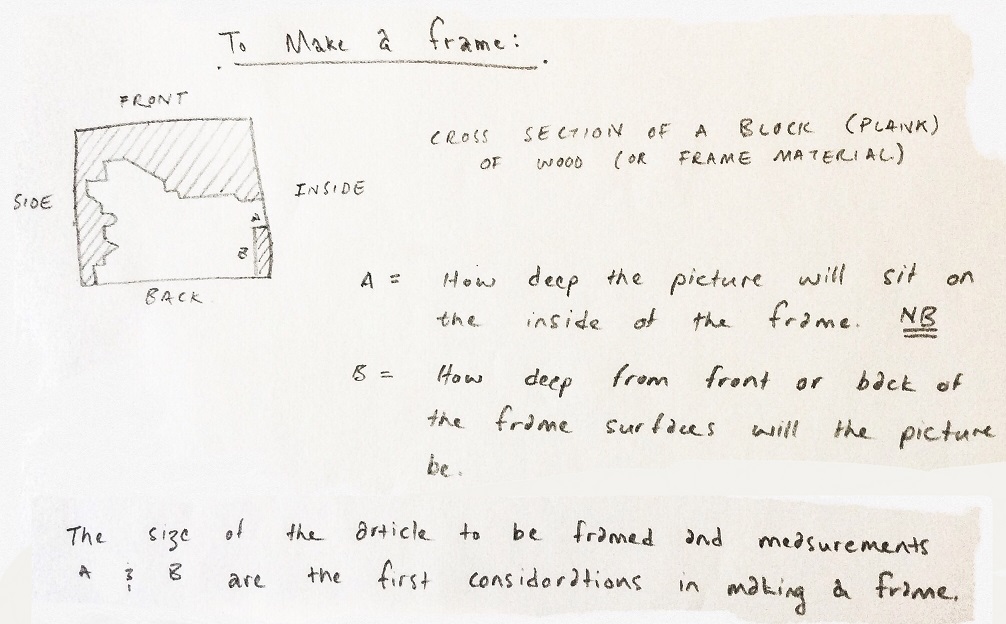 To Make a frame:
FRONT
CROSS SECTION OF A BLOCK (PLANK)
OF WOOD (OR FRAME MATERIAL)
SIDE
INSIDE
A
B
BACK
A = How deep the picture will sit on
the inside of the frame. NB
B = How deep from front or back of
the frame surfaces will the picture
be.
The size of the article to be framed and measurements
A & B are the first considorations in making a frame.